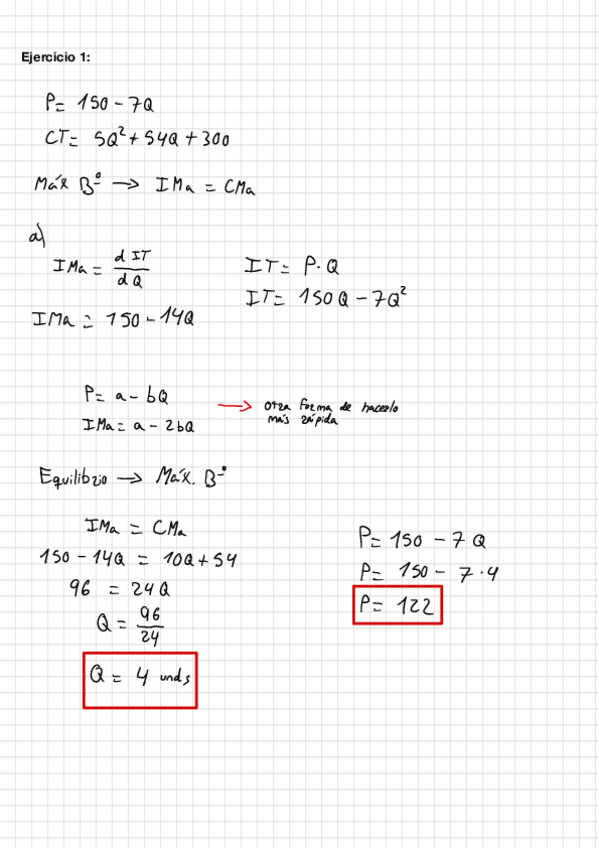 Ejercicio 1:
P = 150 - 7Q
CT = 5Q² + 54Q + 300
Máx Bº → IMa = CMa
a)
IMa = d IT / d Q
IT = P · Q
IT = 150Q - 7Q²
IMa = 150 - 14Q
P = a - bQ
IMa = a - 2bQ
→ otra forma de hacerlo
más rápida
Equilibrio → Máx. Bº
IMa = CMa
150 - 14Q = 10Q + 54
96 = 24Q
Q = 96 / 24
Q = 4 unds
P = 150 - 7Q
P = 150 - 7 · 4
P = 122